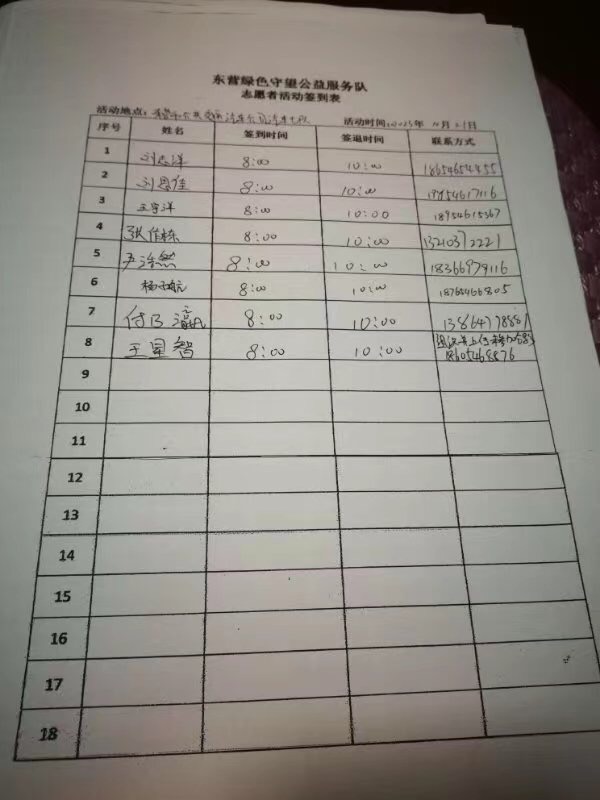 东营绿色守望公益服务队
志愿者活动签到表
活动地点: 活动时间:2025年 11月21日
序号 姓名 签到时间 签退时间 联系方式
1 刘志洋 8:00 10:00 18654654455
2 刘恩佳 8:00 10:00 17854617116
3 王宇洋 8:00 10:00 18954615367
4 张作栋 8:00 10:00 13210372221
5 尹浩然 8:00 10:00 18366979116
6 杨 航 8:00 10:00 18765466805
7 付乃瀛 8:00 10:00 13864778881
8 王星智 8:00 10:00 18605468876
9
10
11
12
13
14
15
16
17
18